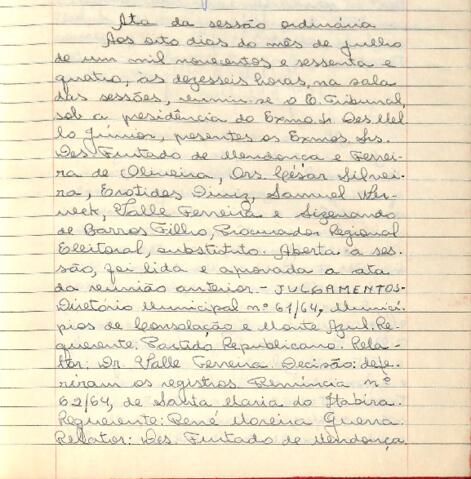 Ata da sessão ordinária
Aos oito dias do mês de julho
de um mil novecentos e sessenta e
quatro, às dezesseis horas, na sala
das sessões, reuniu-se o E. Tribunal,
sob a presidência do Exmo. Sr. Des. Mel
lo Júnior, presentes os Exmos. Srs.
Des. Furtado de Mendonça e Ferrei-
ra de Oliveira, Drs. César Silvei-
ra, Erotides Diniz, Samuel Wer-
neck, Valle Ferreira e Sizenando
de Barros Filho, Procurador Regional
Eleitoral, substituto. Aberta a ses-
são, foi lida e aprovada a ata
da reunião anterior. - JULGAMENTOS-
Diretório Municipal nº 61/64, Municí-
pios de Consolação e Monte Azul. Re-
querente: Partido Republicano. Rela-
tor: Dr. Valle Ferreira. Decisão: defe-
riram os registros. Renúncia nº
62/64, de Santa Maria do Itabira.
Requerente: René Moreira Guerra.
Relator: Des. Furtado de Mendonça.